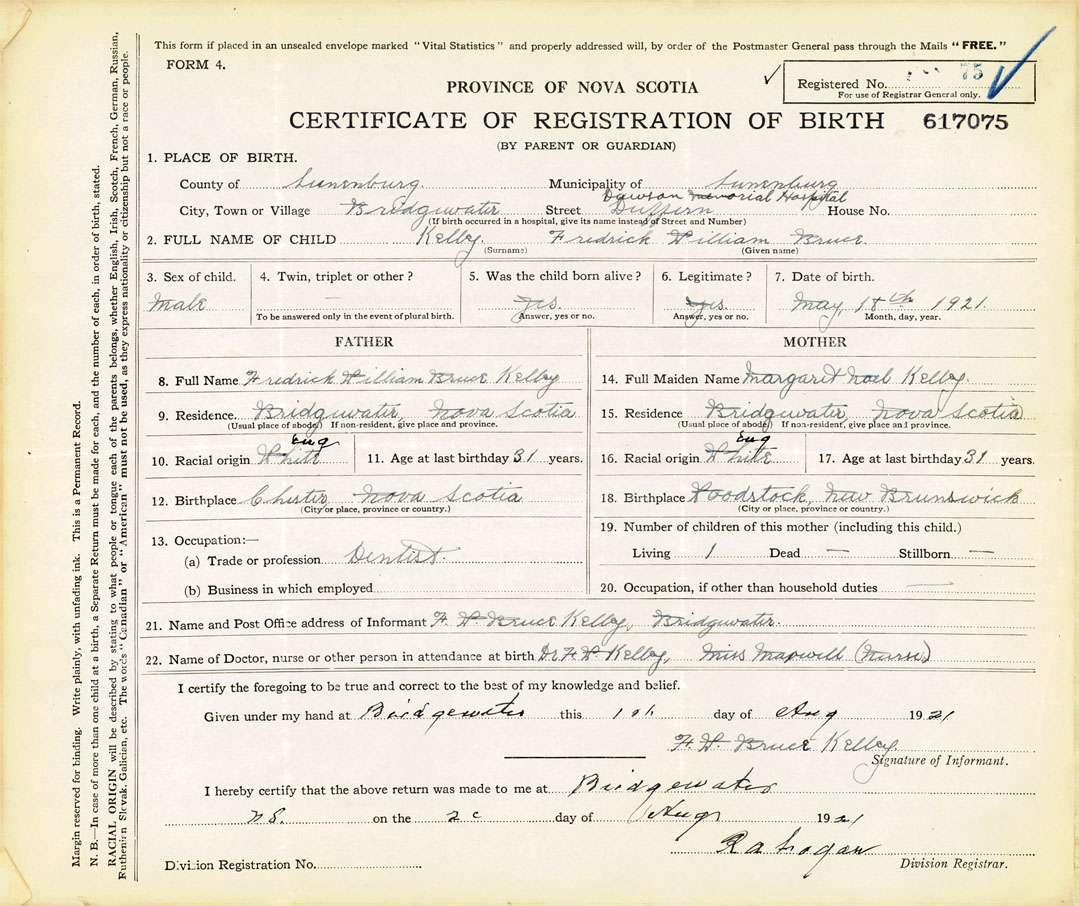 This form if placed in an unsealed envelope marked "Vital Statistics" and properly addressed will, by order of the Postmaster General pass through the Mails "FREE."
FORM 4.
Registered No. 75
For use of Registrar General only.
PROVINCE OF NOVA SCOTIA
CERTIFICATE OF REGISTRATION OF BIRTH 617075
(BY PARENT OR GUARDIAN)
1. PLACE OF BIRTH.
County of Lunenburg. Municipality of Lunenburg
Dawson Memorial Hospital
City, Town or Village Bridgewater Street Dufferin House No.
(If birth occurred in a hospital, give its name instead of Street and Number)
2. FULL NAME OF CHILD Kelley. Fredrick William Bruce.
(Surname) (Given name)
3. Sex of child. 4. Twin, triplet or other? 5. Was the child born alive? 6. Legitimate? 7. Date of birth.
Male — yes. yes. May, 18th 1921.
To be answered only in the event of plural birth. Answer, yes or no. Answer, yes or no. Month, day, year.
FATHER MOTHER
8. Full Name Fredrick William Bruce Kelley 14. Full Maiden Name Margaret Noel Kelley.
9. Residence. Bridgwater, Nova Scotia 15. Residence Bridgwater, Nova Scotia
(Usual place of abode) If non-resident, give place and province. (Usual place of abode) If non-resident, give place and province.
Eng Eng
10. Racial origin White 11. Age at last birthday 31 years. 16. Racial origin White 17. Age at last birthday 31 years.
12. Birthplace Chester Nova Scotia 18. Birthplace Woodstock, New Brunswick
(City or place, province or country.) (City or place, province or country.)
13. Occupation:— 19. Number of children of this mother (including this child.)
(a) Trade or profession Dentist. Living 1 Dead — Stillborn —
(b) Business in which employed 20. Occupation, if other than household duties —
21. Name and Post Office address of Informant F. W. Bruce Kelley, Bridgwater.
22. Name of Doctor, nurse or other person in attendance at birth Dr F. W. Kelley, Miss Maxwell (Nurse)
I certify the foregoing to be true and correct to the best of my knowledge and belief.
Given under my hand at Bridgewater this day of Aug 1921
F. W. Bruce Kelley
Signature of Informant.
I hereby certify that the above return was made to me at Bridgewater
N.S. on the day of Aug 1921
Division Registration No. Division Registrar.
Margin reserved for binding. Write plainly, with unfading ink. This is a Permanent Record.
N. B.—In case of more than one child at a birth, a Separate Return must be made for each, and the number of each, in order of birth, stated.
RACIAL ORIGIN will be described by stating to what people or tongue each of the parents belongs, whether English, Irish, Scotch, French, German, Russian,
Ruthenian Slovak, Galician, etc. The words "Canadian" or "American" must not be used, as they express nationality or citizenship but not a race or people.